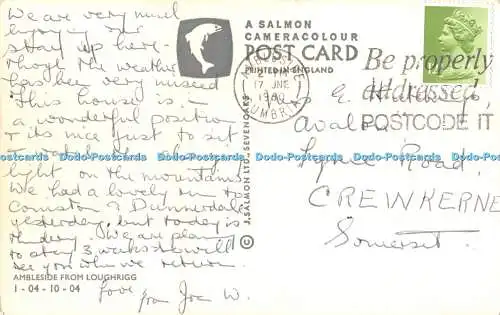 We are very much
enjoying our
stay up here -
though the weather
has been very mixed
This house is in
a wonderful position
& its nice just to sit
& watch the changing
light on the mountains
We had a lovely run to
Coniston & Dunnerdale
yesterday, but today is
thundery. We are planning
to stay 3 weeks & will
see you when we return.
AMBLESIDE FROM LOUGHRIGG
1 - 04 - 10 - 04
Love
from Joan W.
© J. SALMON LTD., SEVENOAKS
A SALMON
CAMERACOLOUR
POST CARD
PRINTED IN ENGLAND
17 JNE
1980
CUMBRIA
Be properly
addressed
POSTCODE IT
Avalon
Lyme Road,
CREWKERNE
Somerset.
www.Postcard-Worlds.com